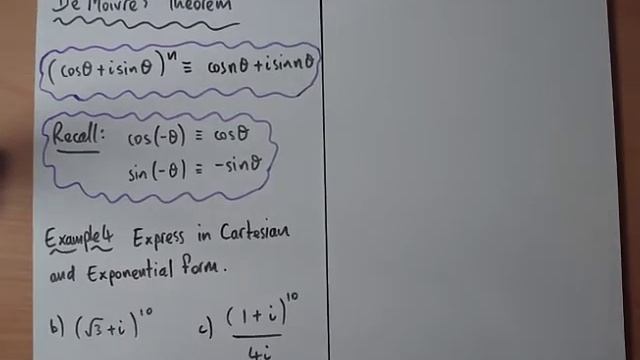 De Moivre's Theorem
(cosθ + isinθ)ⁿ ≡ cosnθ + isinnθ
Recall: cos(-θ) ≡ cosθ
sin(-θ) ≡ -sinθ
Example 4 Express in Cartesian
and Exponential form.
b) (√3 + i)¹⁰ c) (1 + i)¹⁰ / 4i